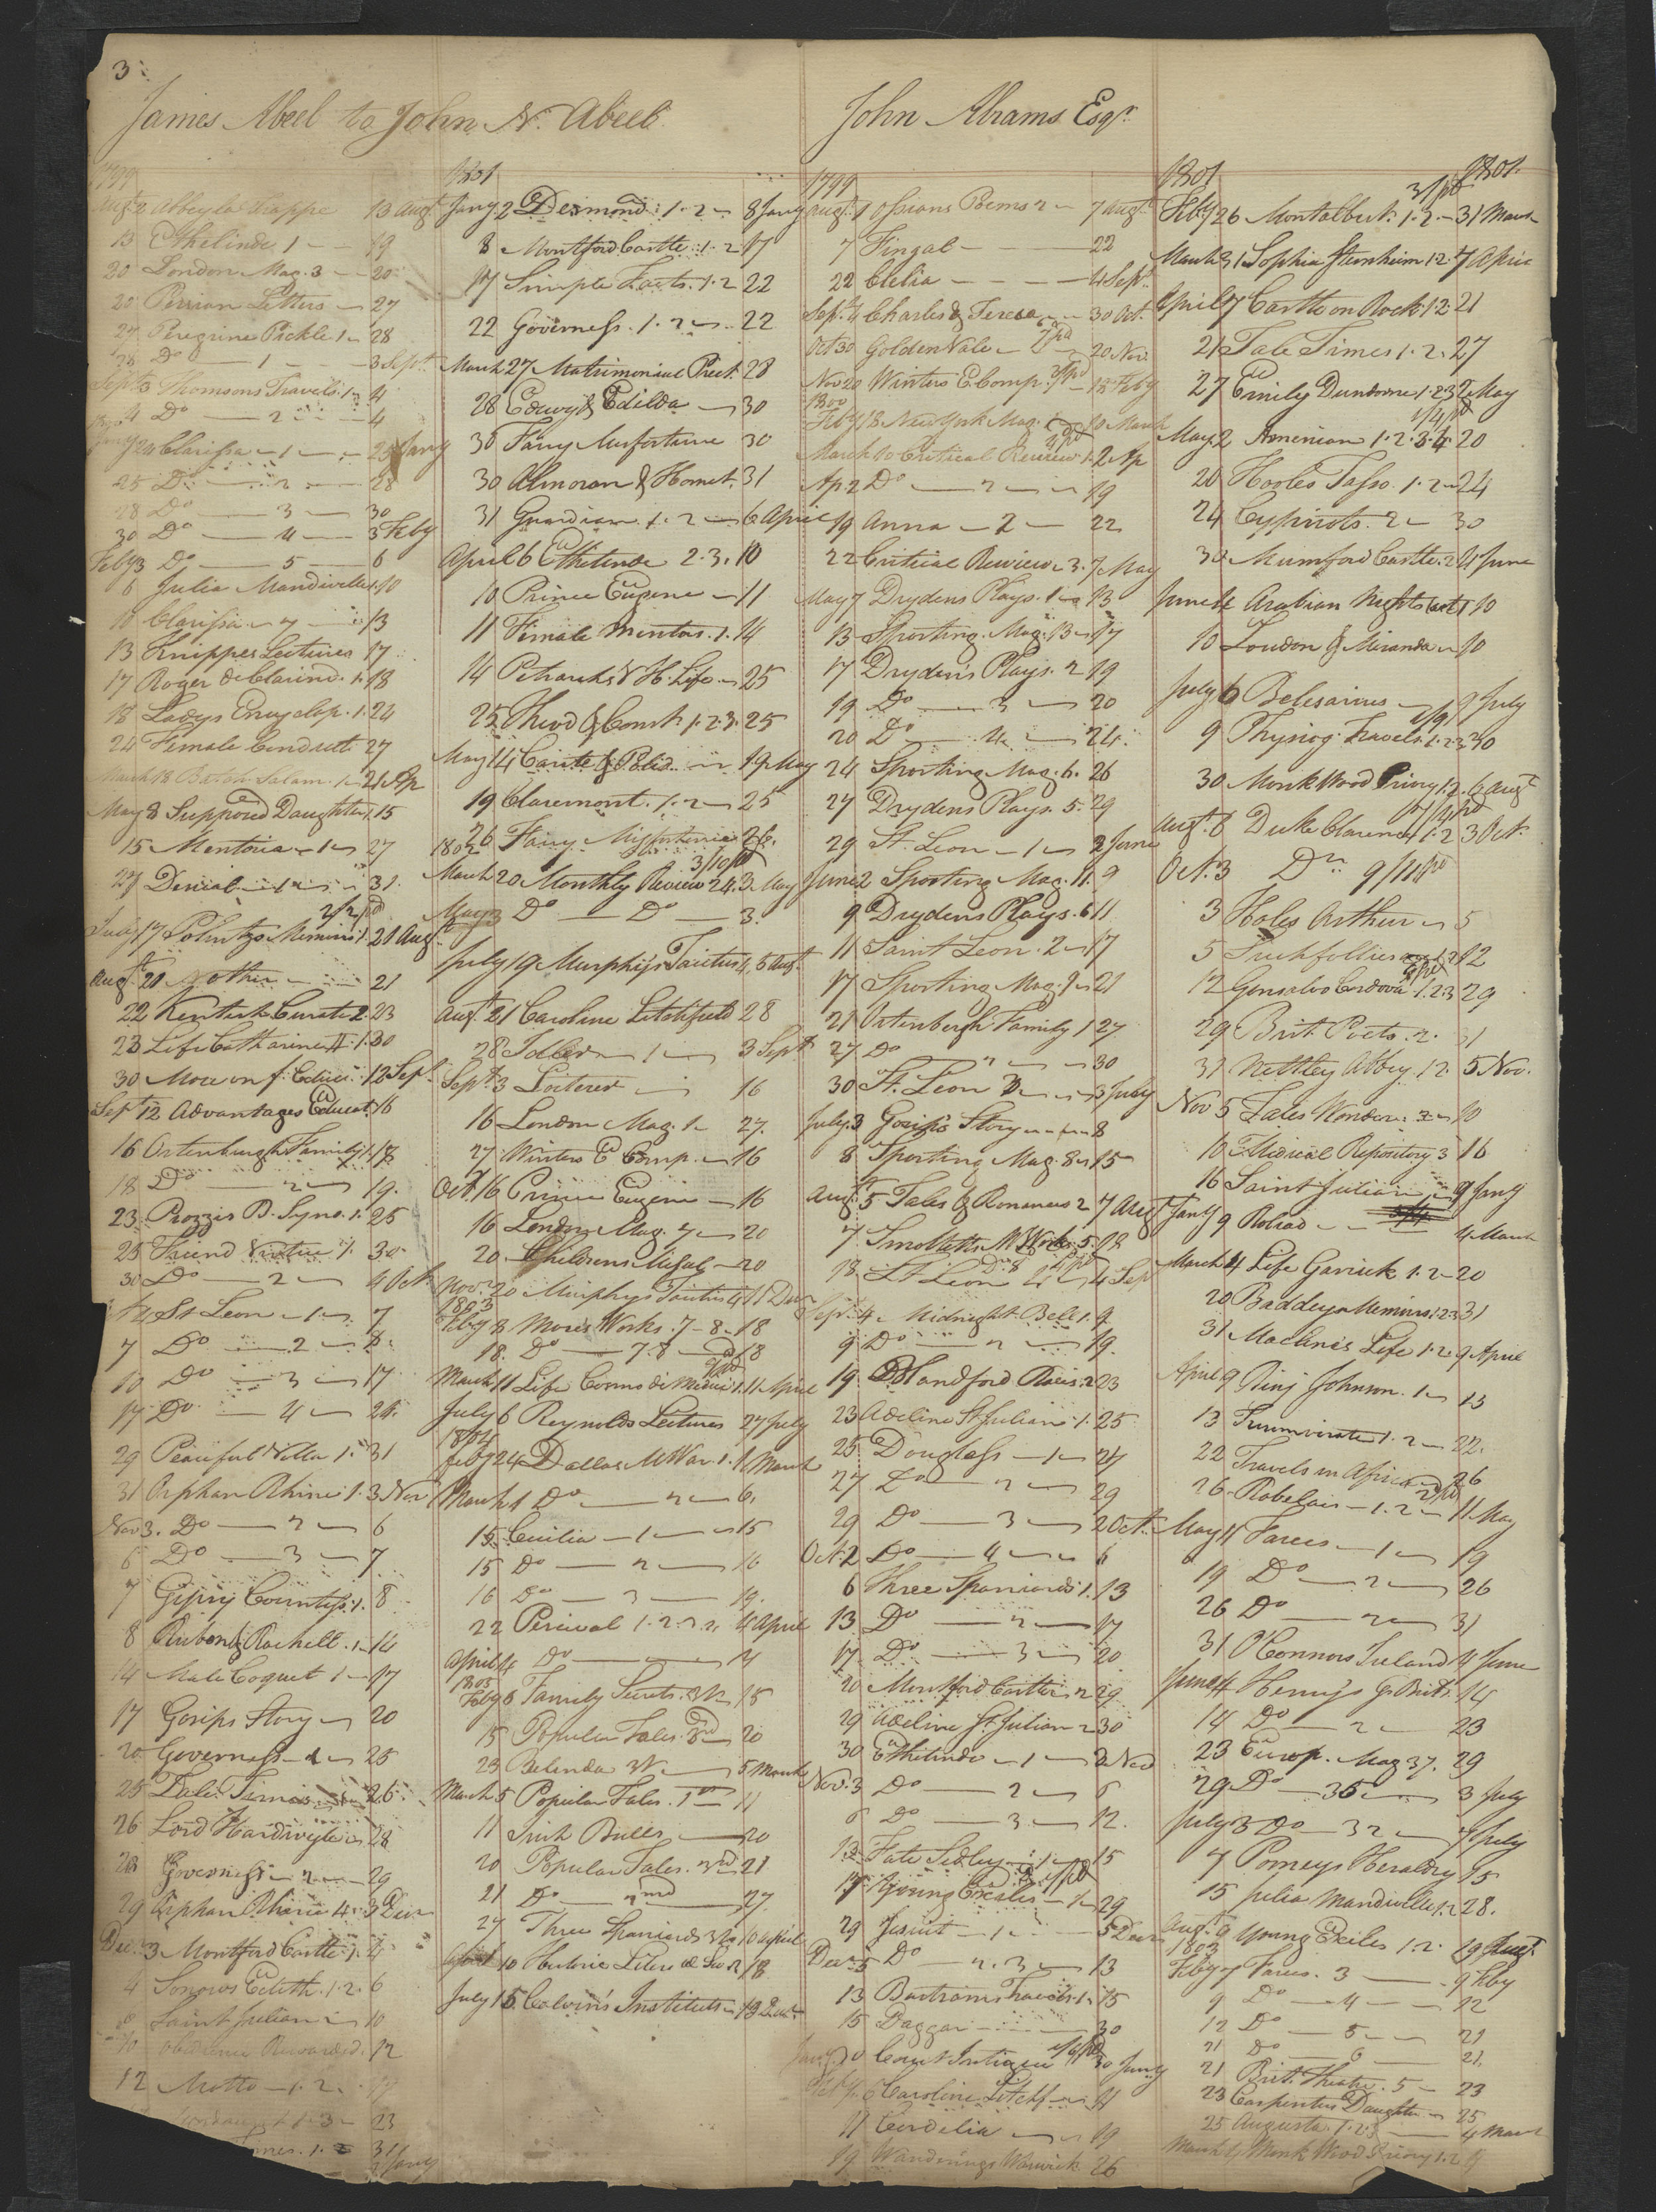 3
James Abeel to John N. Abeel
1799
Augt 2 Abbey la Trappe 13 Augt
13 Ethelinde 1 19
20 London Mag. 3 20
20 Persian Letters 27
27 Peregrine Pickle 1 28
28 Do 1 3 Sept
Sept 3 Thomsons Travels 1 4
4 Do 2 4
Jany 20 Clarissa 1 25 Jany
25 Do 2 28
28 Do 3 30
30 Do 4 3 Feby
Feby 3 Do 5 6
6 Julia Mandiville 1. 10
10 Clarissa 7 13
13 Knippes Lectures 17
17 Roger de Clarind. 1. 18
18 Ladys Encyclop. 1. 24
24 Female Conduct 27
March 18 Salam. 1 21 Ap
May 8 Supposed Daughter 1. 15
15 Mentoria 1 27
27 Denial 1 31.
2/2 pd
July 17 Polnitzs Memoirs 1. 21 Augt
Augt 21 Mother 21
22 Kentish Curate 2. 23
23 Life Catharine II. 1. 30
30 More on f. Educ. 12 Sep.
Sept 12 Advantages Educat. 16
16 Ortenburgh Family 1. 18
18 Do 2 19.
23 Piozzis B. Syno. 1. 25
25 Friend Virtue 1. 30
30 Do 2 4 Oct
4 St Leon 1 7
7 Do 2 8.
10 Do 3 17
17 Do 4 24.
29 Peaceful Villa 1. 31
31 Orphan Rhine 1. 3 Nov
Nov 3. Do 2 6
6 Do 3 7
7 Gipsy Countess 1. 8
8 Rubon & Rachell. 1 14
14 Male Coquet 1 17
17 Gosips Story 20
20 Governess 1 25
25 Tale Times 26.
26 Lord Hardwyle 28
28 Governess 2 29
29 Orphan Rhine 4. 3 Decr
Decr 3 Montford Castle 1. 4
4 Sorrows Edith. 1. 2. 6
Saint Julian 10
10 obedience Rewarded. 12
12 Motto 1. 2.
1. 3 23
1. 2 31
Jany
1801
Jany 2 Desmond 1. 2 8 Jany
8 Montford Castle 1. 2 17
17 Simple Facts. 1. 2 22
22 Governess. 1. 2 22
March 27 Matrimonial Prect. 28
28 Edwy & Edilda 30
30 Fany Misfortune 30
30 Almoran & Hamet. 31
31 Guardian. 1. 2 6 April
April 6 Ethelinde 2. 3. 10
10 Prince Eugene 11
11 Female Mentor. 1. 14
14 Petrarchs & H. Life 25
25 Theod & Const. 1. 2. 3. 25
May 14 Carite & Polid. 19 May
19 Claremont. 1. 2 25
26 Fairy Misfortunes 26.
1802
3/10 pd
March 20 Monthly Review 24. 3 May
May 3 Do Do 3.
July 19 Murphy's Tacitus 4. 5 Augt.
Augt. 21 Caroline Litchfield 28
28 Idler 1 3 Sept
Sept 3 Loiterer 16
16 London Mag. 1 27.
27. Winters E Comp. 16
Oct. 16 Prince Eugene 16
16 London Mag. 7 20
20 Childrens Misfol 20
Nov. 20 Murphys Tacitus 4 11 Decr
1803
Feby 8 Mores Works 7 - 8. 18
18. Do 7. 8 18
March 11 Life Cosmo di Medici 1. 11 April
July 6 Reynolds Lectures 27 July
1804
Feby 24 Dallas M War. 1. 1 March
March 1 Do 2 6.
15 Cecilia 1 15
15 Do 2 16
16 Do 3 19.
22 Percival 1. 2. 3. 4. 4 April
April 4 Do 14
1805
Feby 6 Family Secrets. 3d 15
15 Popular Tales. 3d 20
23 Belinda 5 March
March 5 Popular Tales. 1st 11
11 Irish Bulls 20
20 Popular Tales. 3rd 21
21 Do 2nd 27.
27 Three Spaniards 10 April
April 10 18
July 15. Calvin's Institut. 19 Decr
John Abrams Esqr.
1799
Augt. 1 Ossians Poems 2 7 Augt
7 Fingal 22
22 Clelia 4 Sept.
Sept. 4 Charles & Teresa 30 Oct.
Oct 30 Golden Vale 20 Nov.
Nov 20 Winters E Comp. 18 Feby
1800
Feby 18 New York Mag. 10 March
March 10 Critical Review 1. 2 Ap
Ap 2 Do 2 19
19 Anna 2 22
22 Critical Review 3. 7 May
May 7 Drydens Plays. 1 13
13 Sporting Mag. 13 17
17 Dryden's Plays. 2 19
19 Do 3 20
20 Do 4 24.
24 Sporting Mag. 6. 26
27 Drydens Plays. 5. 29
29 St. Leon 1 2 June
June 2 Sporting Mag. 11. 9
9 Drydens Plays. 6 11
11 Saint Leon. 2 17
17 Sporting Mag. 9 21
21 Ortenbergh Family 1 27
27 Do 2 30
30 St. Leon 3 3 July
July 3 Gosip's Story 8
8 Sporting Mag. 8 15
Augt. 5 Tales & Romances 2 7 Augt
7 Smolletts M Works 5. 18
18 St Leon 4 4 Sep
Sept. 4 Midnight Bell 1. 9
9 Do 2 19.
19 Handford Races. 2 23
23 Adeline St Julian 1. 25
25 Douglass 1 27
27 Do 2 29
29 Do 3 2 Oct.
Oct. 2 Do 4 6
6 Three Spaniards 1. 13
13. Do 2 17
17. Do 3 20
20 Montford Castle 2 29
29 Adeline St. Julian 2 30
30 Ethelinde 1 3 Nov
Nov. 3 Do 2 6
6 Do 3 12.
12 Fate Sedley 1 15
17 Young Exiles 1 29
29 Jesuit 1 5 Decr
Decr. 5 Do 2. 3 13
13 Bartrams Travels 1. 15
15 Daggar 30
Jany. 30 Court Intrigue 30 Jany
Feby. 6 Caroline Litchf. 11
11 Cordelia 19
19 Wanderings Warwick 26
1801
1801.
3/ pd
Feby 26 Montalbert. 1. 2 31 March
March 31 Sophia Sternheim 1. 2. 7 April
April 7 Castle on Rock 1. 2 21
21 Tale Times 1. 2. 27
27 Emily Dundorne 1. 2 3 2 May
1/4 pd
May 2 Armenian 1. 2. 3. 4. 20
20 Hooles Tasso. 1. 2 24
24 Cypriots. 2 30
30 Mumford Castle. 2 4 June
June 4 Arabian Nights 1 10
10 Loudon & Miranda 10
July 6 Belisarius 9 July
9 Physiog. Travels. 1. 2. 3. 30
30 Monk Wood Priory 1. 2. 6 Augt
Augt. 6 Duke Clarence 1. 2 3 Oct.
Oct. 3 Do 9/11 pd
3 Holes Arthur 5
5 Such follies 12
12 Gonsalvo Cordova 1. 2. 3 29
29 Brit. Poets. 2. 31
31 Nettley Abbey 1. 2. 5 Nov.
Nov 5 Tales Wonder. 2 10
10 Medical Repository 3 16
16 Saint Julian 9 Jany
Jany 9 Roliad 4 March
March 4 Life Garrick 1. 2 20
20 Baddeys Memoirs 1. 2. 3 31
31 Maclins Life 1. 2. 9 April
April 9 Rinj Johnson. 1 13
13 Triumvirate 1. 2 22.
22 Travels in Africa 26
26 Rabelais 1. 2 11 May
May 11 Farces 1 19
19 Do 2 26
26 Do 2 31
31 O'Connors Ireland 4 June
June 4 Henry's G. Brit. 14
14 Do 2 23
23 Europ. Mag 37. 29
29 Do 36 3 July
July 3 Do 32 7 July
7 Porneys Heraldry 15
15 Julia Mandiville 1. 2 28.
Augt. 9 Young Exiles 1. 2. 19 Augt.
1803
Feby 7 Farces. 3 9 Feby
9 Do 4 12
12 Do 5 21
21 Do 6 21.
21 Brit. Theatre. 5 23
23 Carpenters Daughter 25
25 Augusta. 1. 2. 3 4 March
March 4 Monk Wood Priory 1. 2